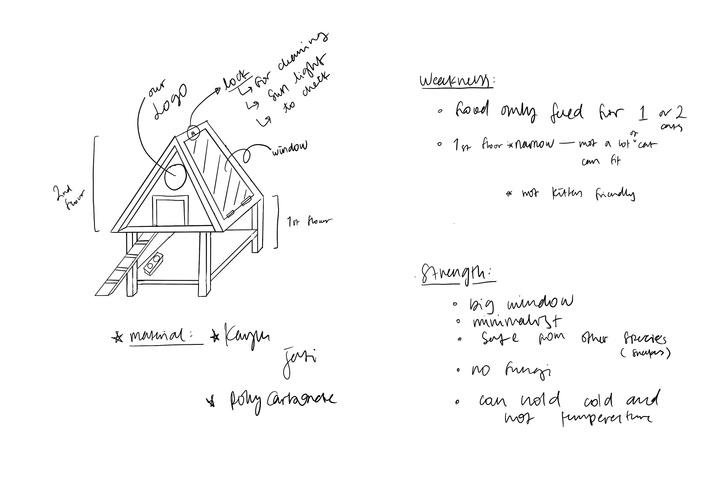 our
LOGO
lock
↳ for cleaning
↳ sun light
↳ to check
window
2nd
floor
1st floor
★ material: ★ Kayu
Jati
★ Polycarbonate
Weakness:
• food only feed for 1 or 2
cats
• 1st floor narrow — not a lot of cat
can fit
* not kitten friendly
Strength:
• big window
• minimalist
• Safe from other species
(snakes)
• no fungi
• can hold cold and
hot temperature